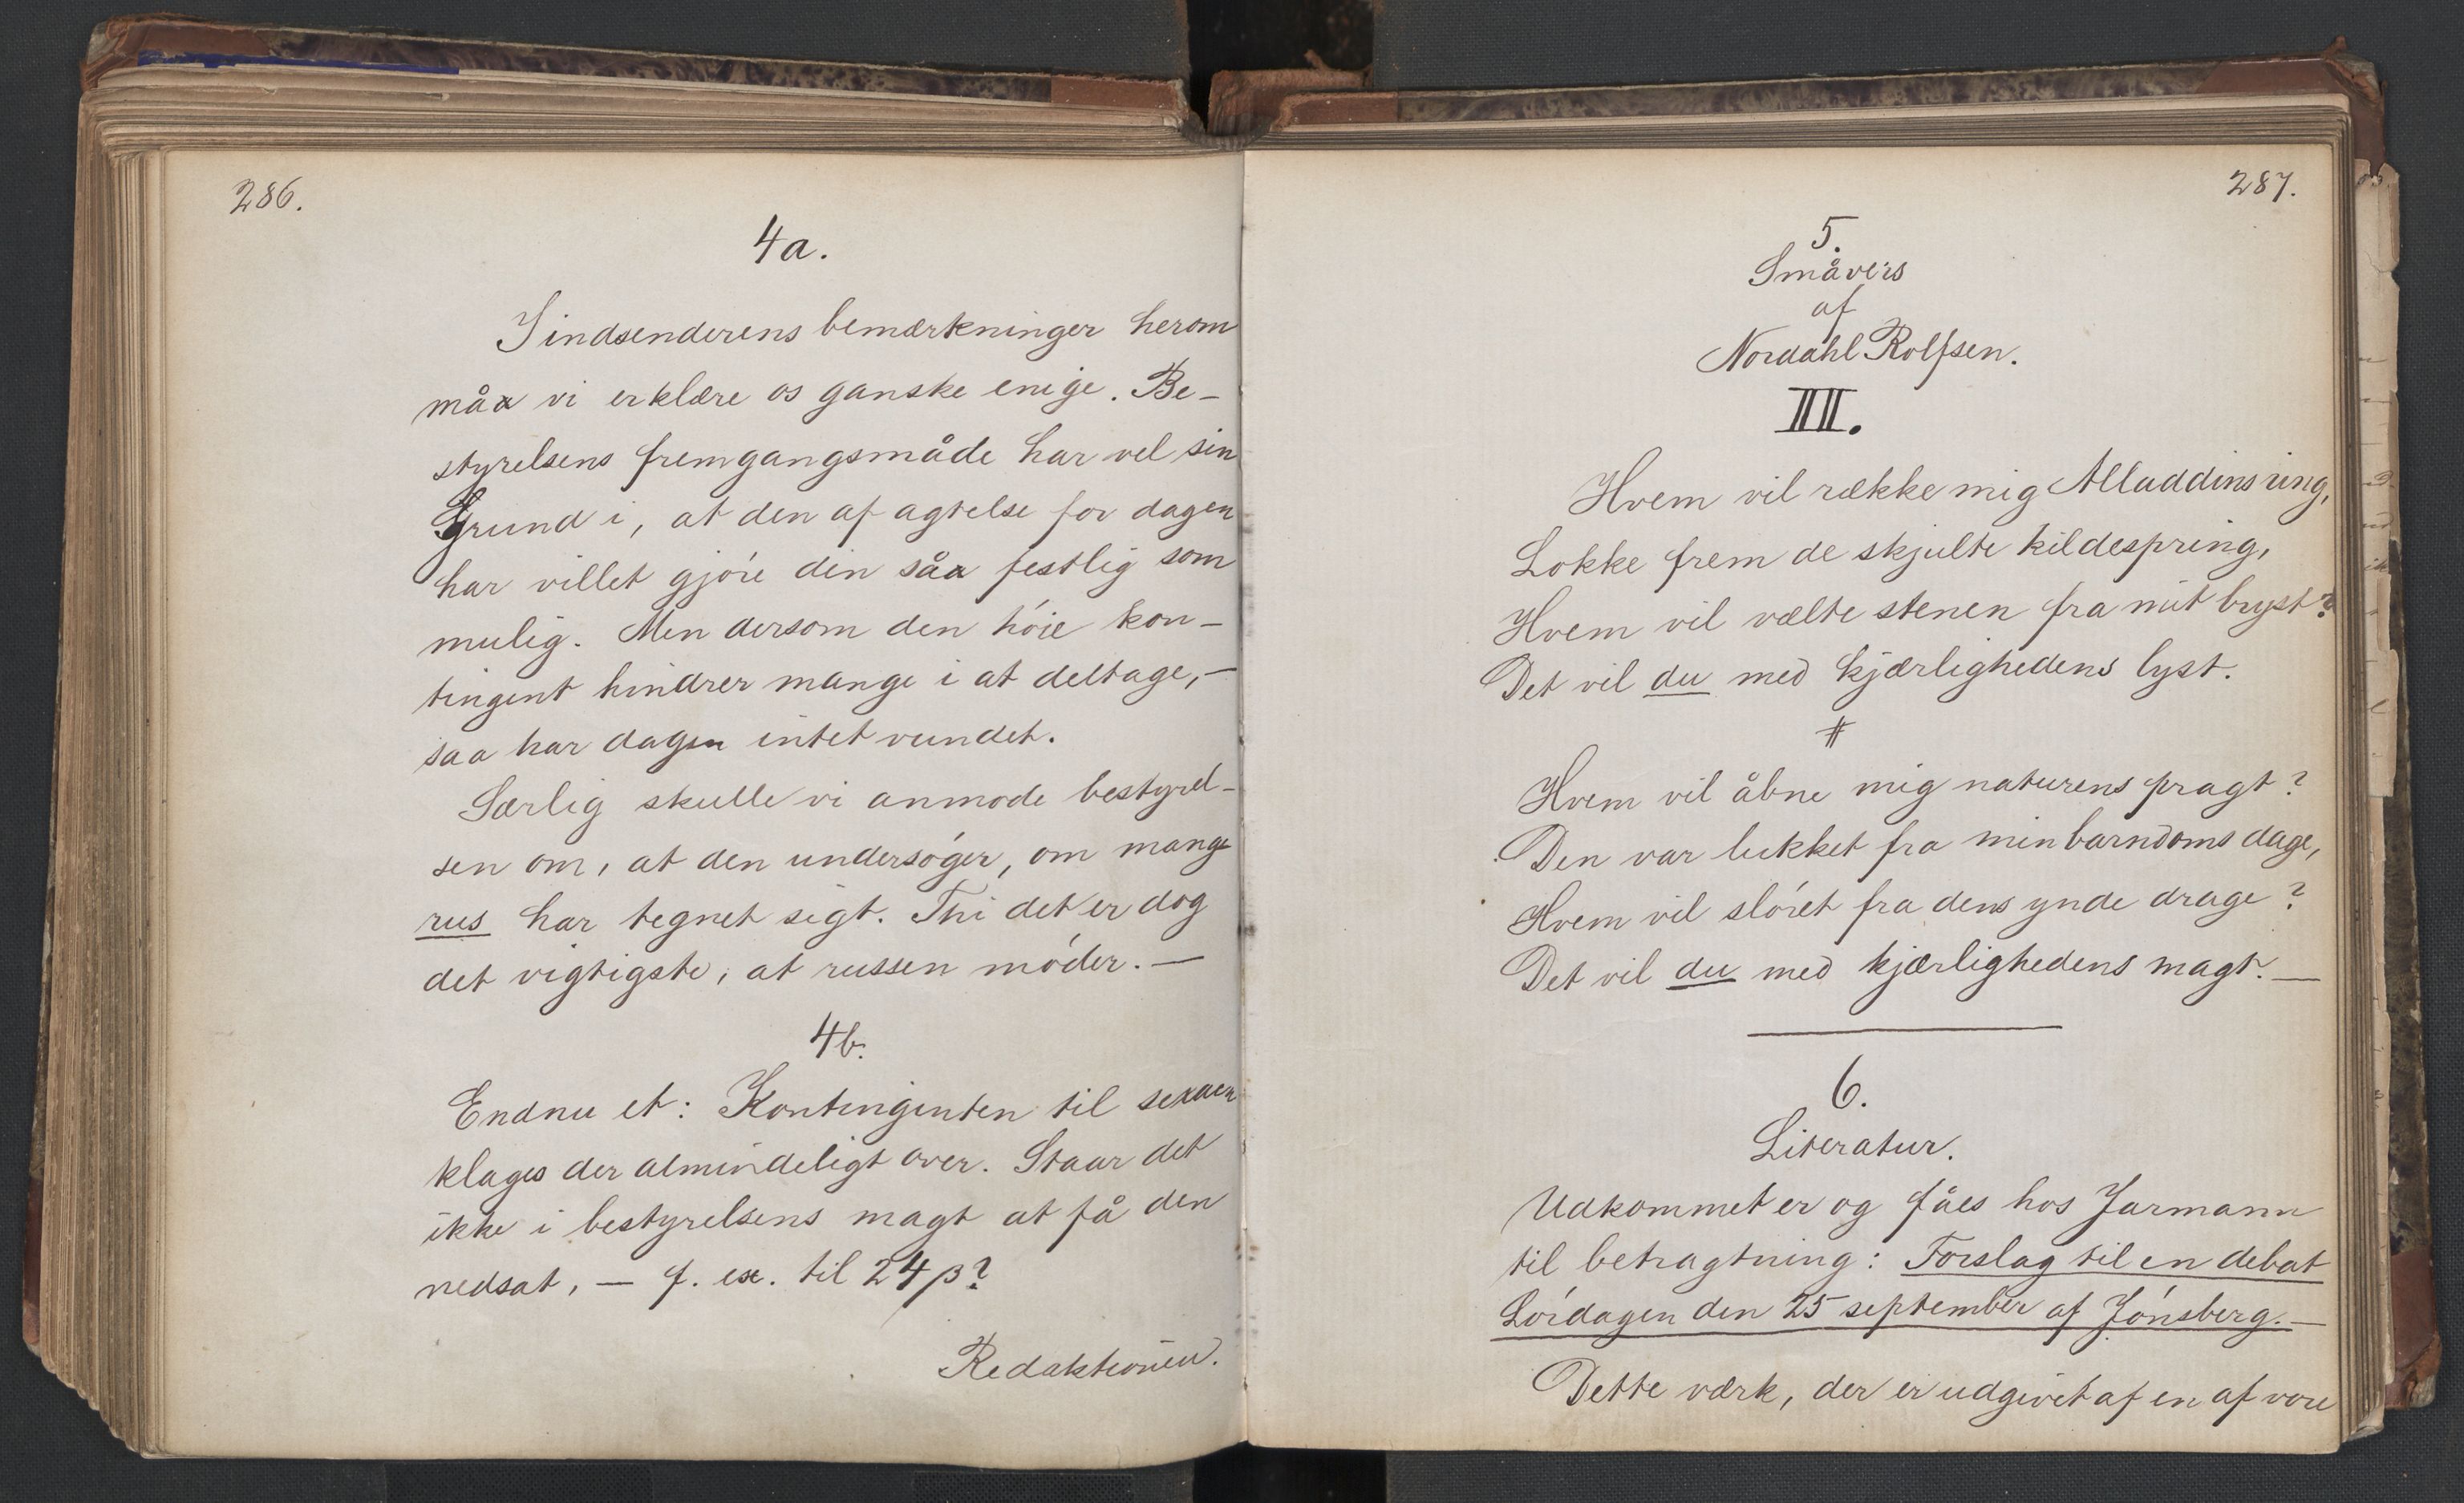 286.
4a.
I indsenderens bemærkninger herom
måa vi erklære os ganske enige. Be-
styrelsens fremgangsmåde har vel sin
Grund i, at den af agtelse for dagen
har villet gjóre den såa festlig som
mulig. Men dersom den hóie kon-
tingent hindrer mange i at deltage, -
saa har dagen intet vundet.
Særlig skulle vi anmode bestyrel-
sen om, at den undersóger, om mange
rus har tegnet sigt. Thi det er dog
det vigtigste, at russen móder. —
4b.
Endnu et: Kontingenten til sexaen
klages der almindeligt over. Staar det
ikke i bestyrelsens magt at få den
nedsat, — f. ex. til 24 β?
Redaktionen.
287.
5.
Småvers
af
Nordahl Rolfsen.
III.
Hvem vil række mig Alladdins ring,
Lokke frem de skjulte kildespring,
Hvem vil vælte stenen fra mit bryst?
Det vil du med kjærlighedens lyst.
#
Hvem vil åbne mig naturens pragt?
Den var lukket fra min barndoms dage,
Hvem vil slóret fra dens ynde drage?
Det vil du med kjærlighedens magt. —
6.
Literatur.
Udkommet er og fåes hos Jarmann
til betragtning: Forslag til en debat
Lórdagen den 25 september af Jónsberg. —
Dette værk, der er udgivet af en af vore